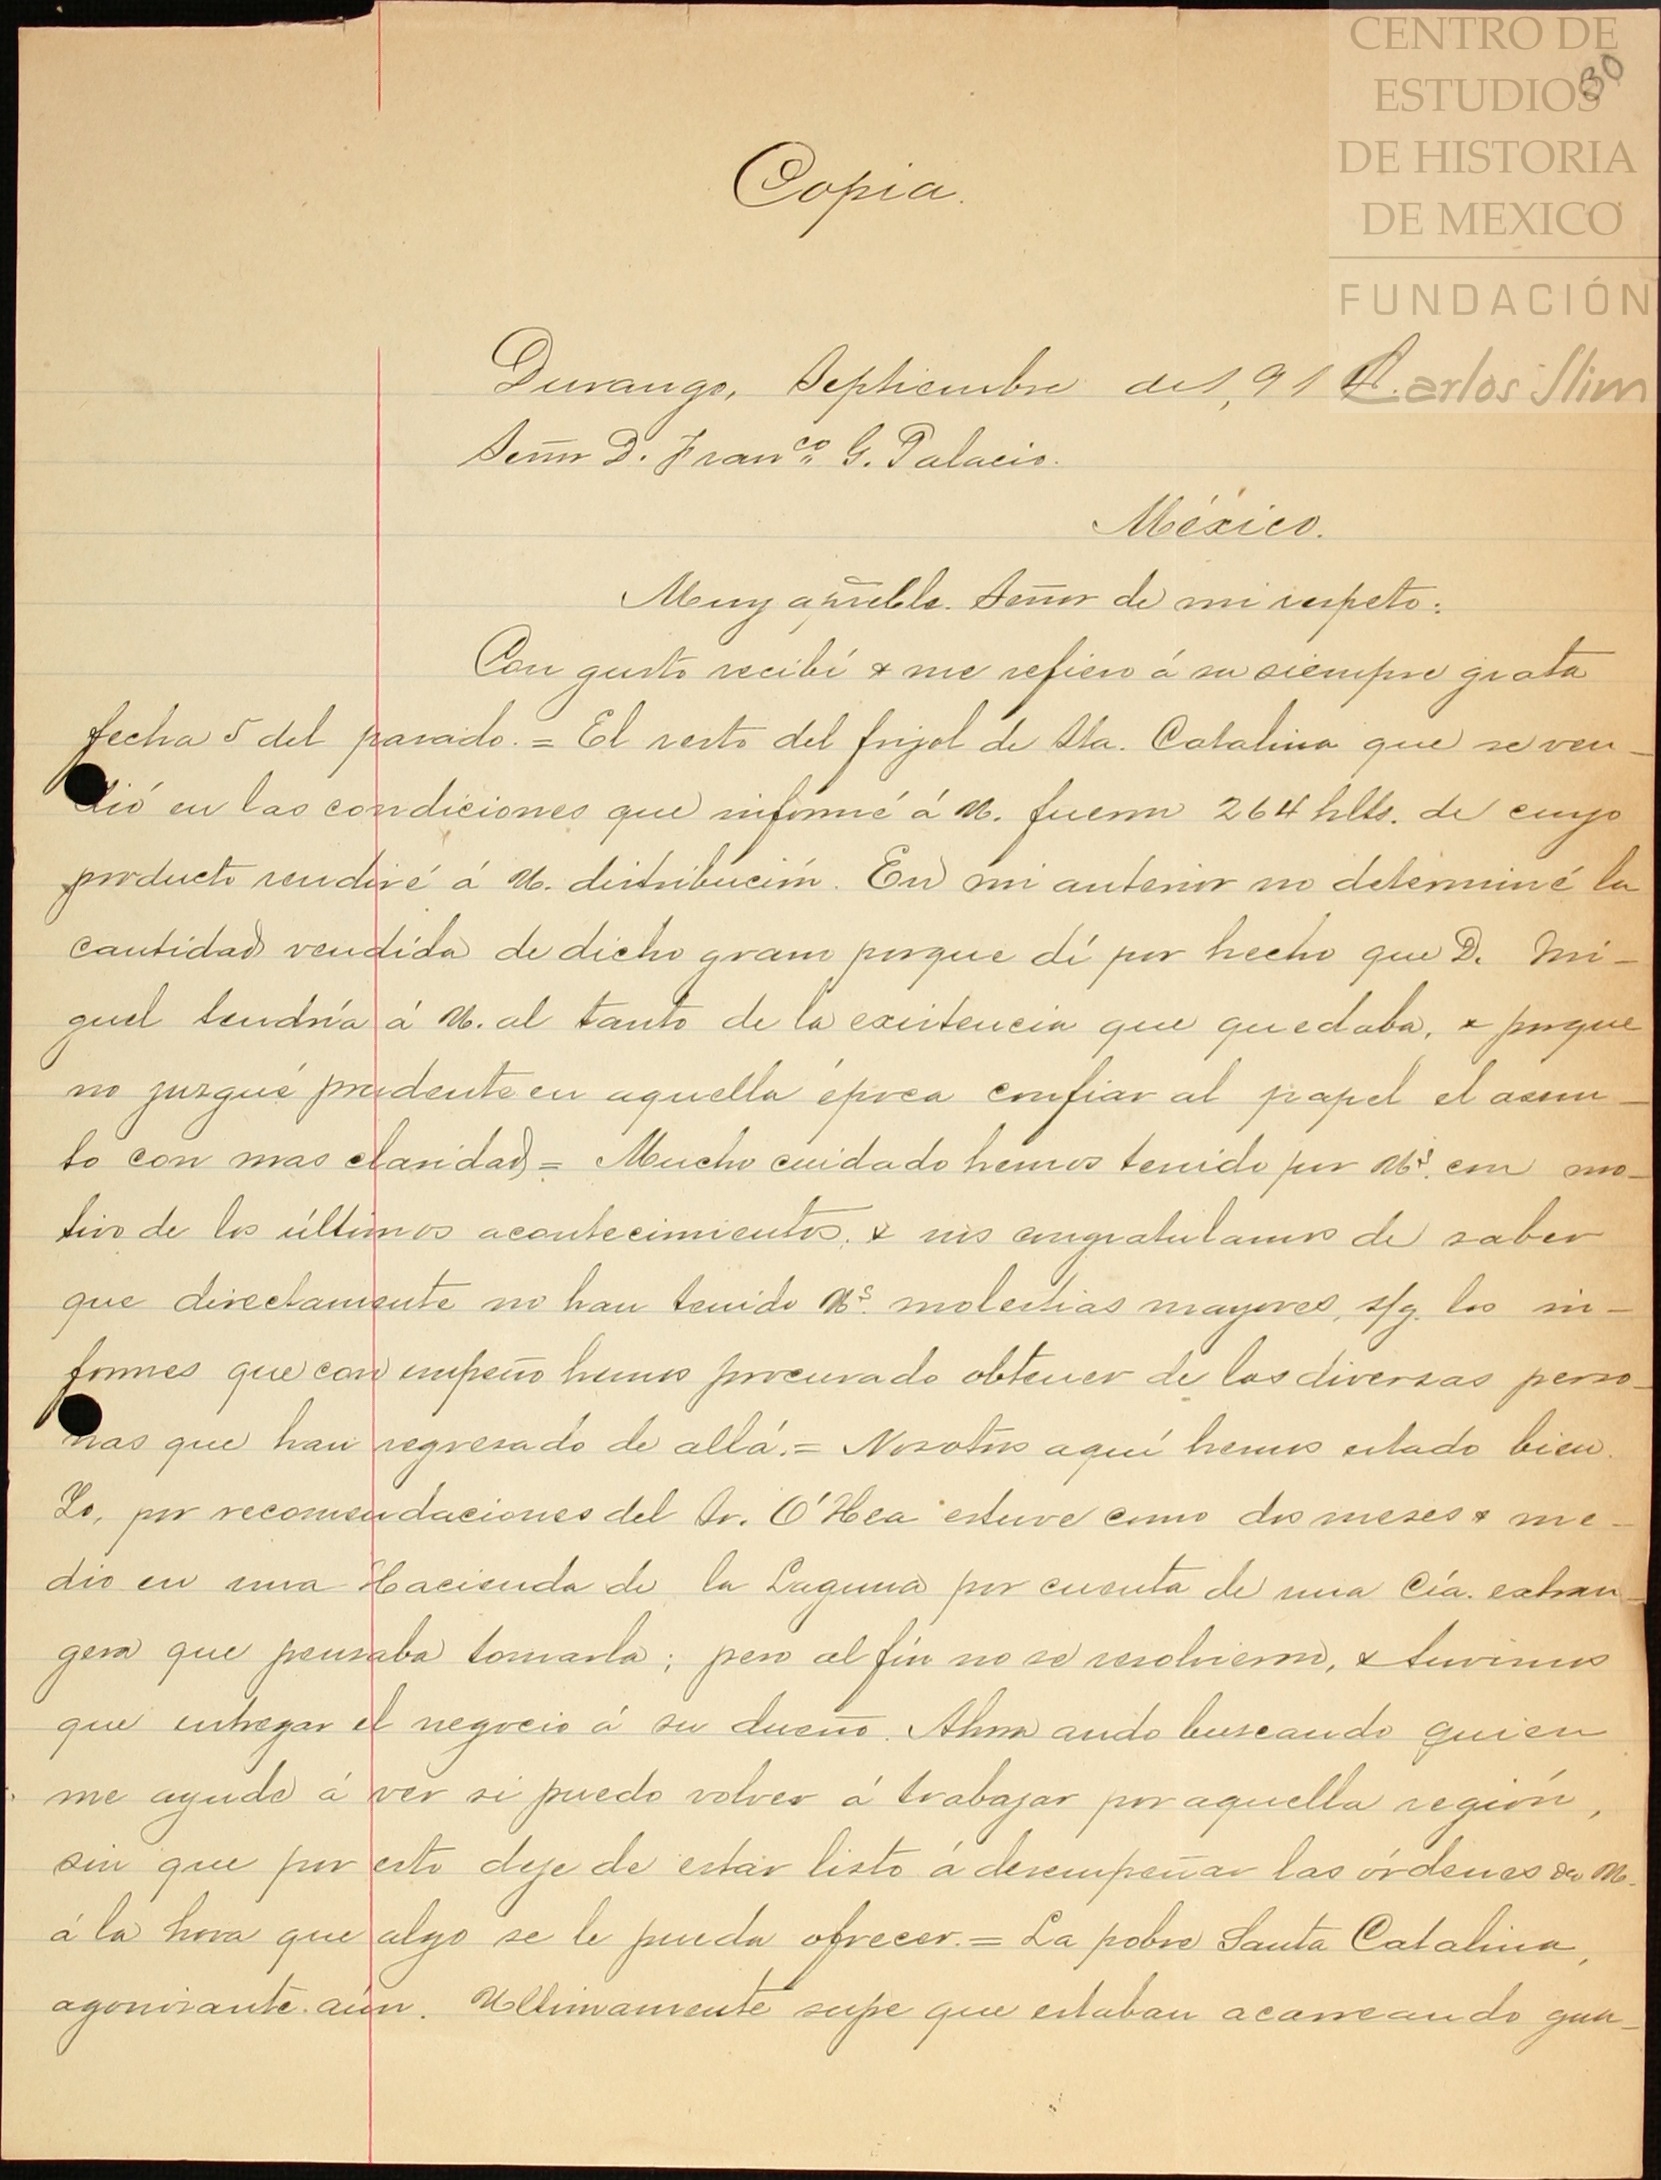 CENTRO DE
ESTUDIOS
DE HISTORIA
DE MEXICO
FUNDACIÓN
Carlos Slim
30
Copia.
Durango, Septiembre de 1,91
Señor D. Franco. G. Palacio.
México.
Muy apreble. Señor de mi respeto:
Con gusto recibí & me refiero á su siempre grata
fecha 5 del pasado. = El resto del frijol de Sta. Catalina que se ven-
dió en las condiciones que informé á U. fueron 264 hlts. de cuyo
producto rendiré á U. distribución. En mi anterior no determiné la
cantidad vendida de dicho grano porque dí por hecho que D. Mi-
guel tendría á U. al tanto de la existencia que quedaba, & porque
no juzgué prudente en aquella época confiar al papel el asun-
to con mas claridad = Mucho cuidado hemos tenido por Us. con mo-
tivo de los últimos acontecimientos, & nos congratulamos de saber
que directamente no han tenido Us. molestias mayores, s/g. los in-
formes que con empeño hemos procurado obtener de las diversas perso-
nas que han regresado de allá. = Nosotros aquí hemos estado bien.
Yo, por recomendaciones del Sr. O'Hea estuve como dos meses & me-
dio en una Hacienda de la Laguna por cuenta de una Cía. extran-
gera que pensaba tomarla; pero al fín no se resolvieron, & tuvimos
que entregar el negocio á su dueño. Ahora ando buscando quien
me ayude á ver si puedo volver á trabajar por aquella región,
sin que por esto deje de estar listo á desempeñar las órdenes de U.
á la hora que algo se le pueda ofrecer. = La pobre Santa Catalina,
agonizante aún. Ultimamente supe que estaban acarreando gua-